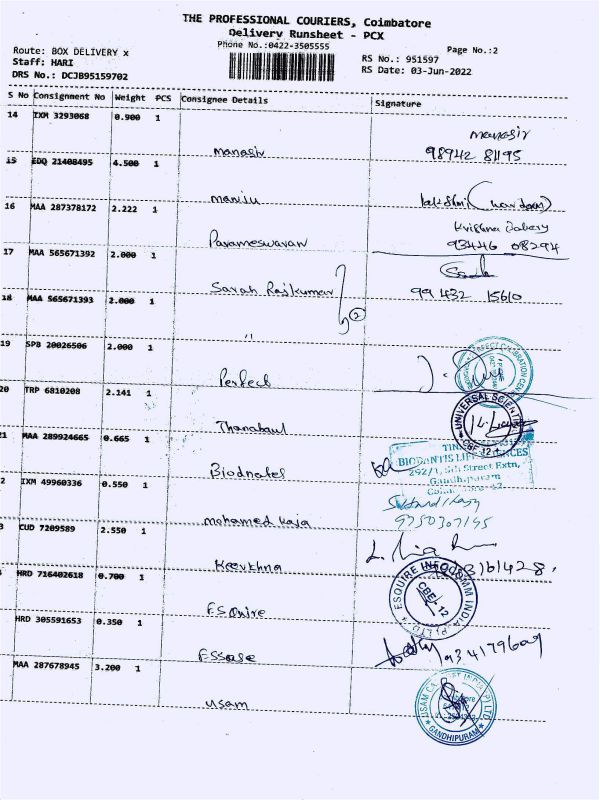 THE PROFESSIONAL COURIERS, Coimbatore
Delivery Runsheet - PCX
Phone No.:0422-3505555
Page No.:2
Route: BOX DELIVERY x
Staff: HARI
DRS No.: DCJB95159702
RS No.: 951597
RS Date: 03-Jun-2022
S No Consignment No Weight PCS Consignee Details Signature
14 IXM 3293068 0.900 1 manasiv manasiv
98942 81195
15 EDQ 21408495 4.500 1 maniju
16 MAA 287378172 2.222 1 Parameswaran Krishna Bakery
93446 08294
17 MAA 565671392 2.000 1 Sarah Rajkumar
99 432 15610
18 MAA 565671393 2.000 1 " 2
19 SPB 20026506 2.000 1 Perfect
PERFECT CALIBRATION
20 TRP 6810208 2.141 1
UNIVERSAL SCIENTI
CBE 12
1 MAA 289924665 0.665 1 Biodnates
BIODANTIS LIFE SCIENCES
292/1, 5th Street Extn,
Gandhipuram
2 IXM 49960336 0.550 1 mohamed
9350307195
3 CUD 7209589 2.550 1 Keerthna
HRD 716402618 0.700 1 Esquire
ESQUIRE INFOCOMM INDIA P LTD
CBE 12
HRD 305591653 0.350 1 Essase
9341796009
MAA 287678945 3.200 1 usam
USAM INDIA P LTD
GANDHIPURAM